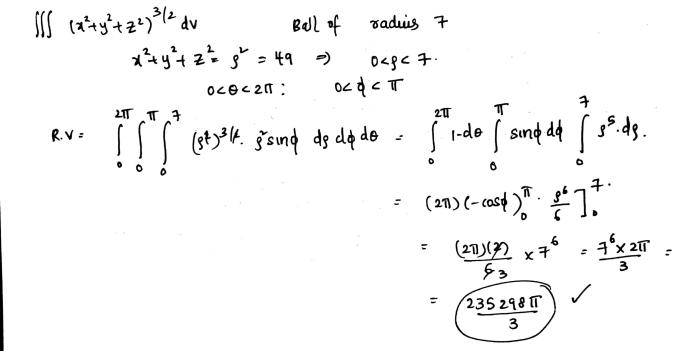 ∭ (x²+y²+z²)^3/2 dv Ball of radius 7
x²+y²+z² = ρ² = 49 ⇒ 0<ρ<7.
0<θ<2π : 0<ϕ<π
R.V = ∫₀^2π ∫₀^π ∫₀^7 (ρ²)^3/2. ρ² sinϕ dρ dϕ dθ = ∫₀^2π 1·dθ ∫₀^π sinϕ dϕ ∫₀^7 ρ⁵. dρ.
= (2π) (-cosϕ)₀^π . ρ⁶/6 ]₀^7.
= (2π)(2)/6 3 × 7⁶ = 7⁶×2π/3 =
= 235298π/3 ✓